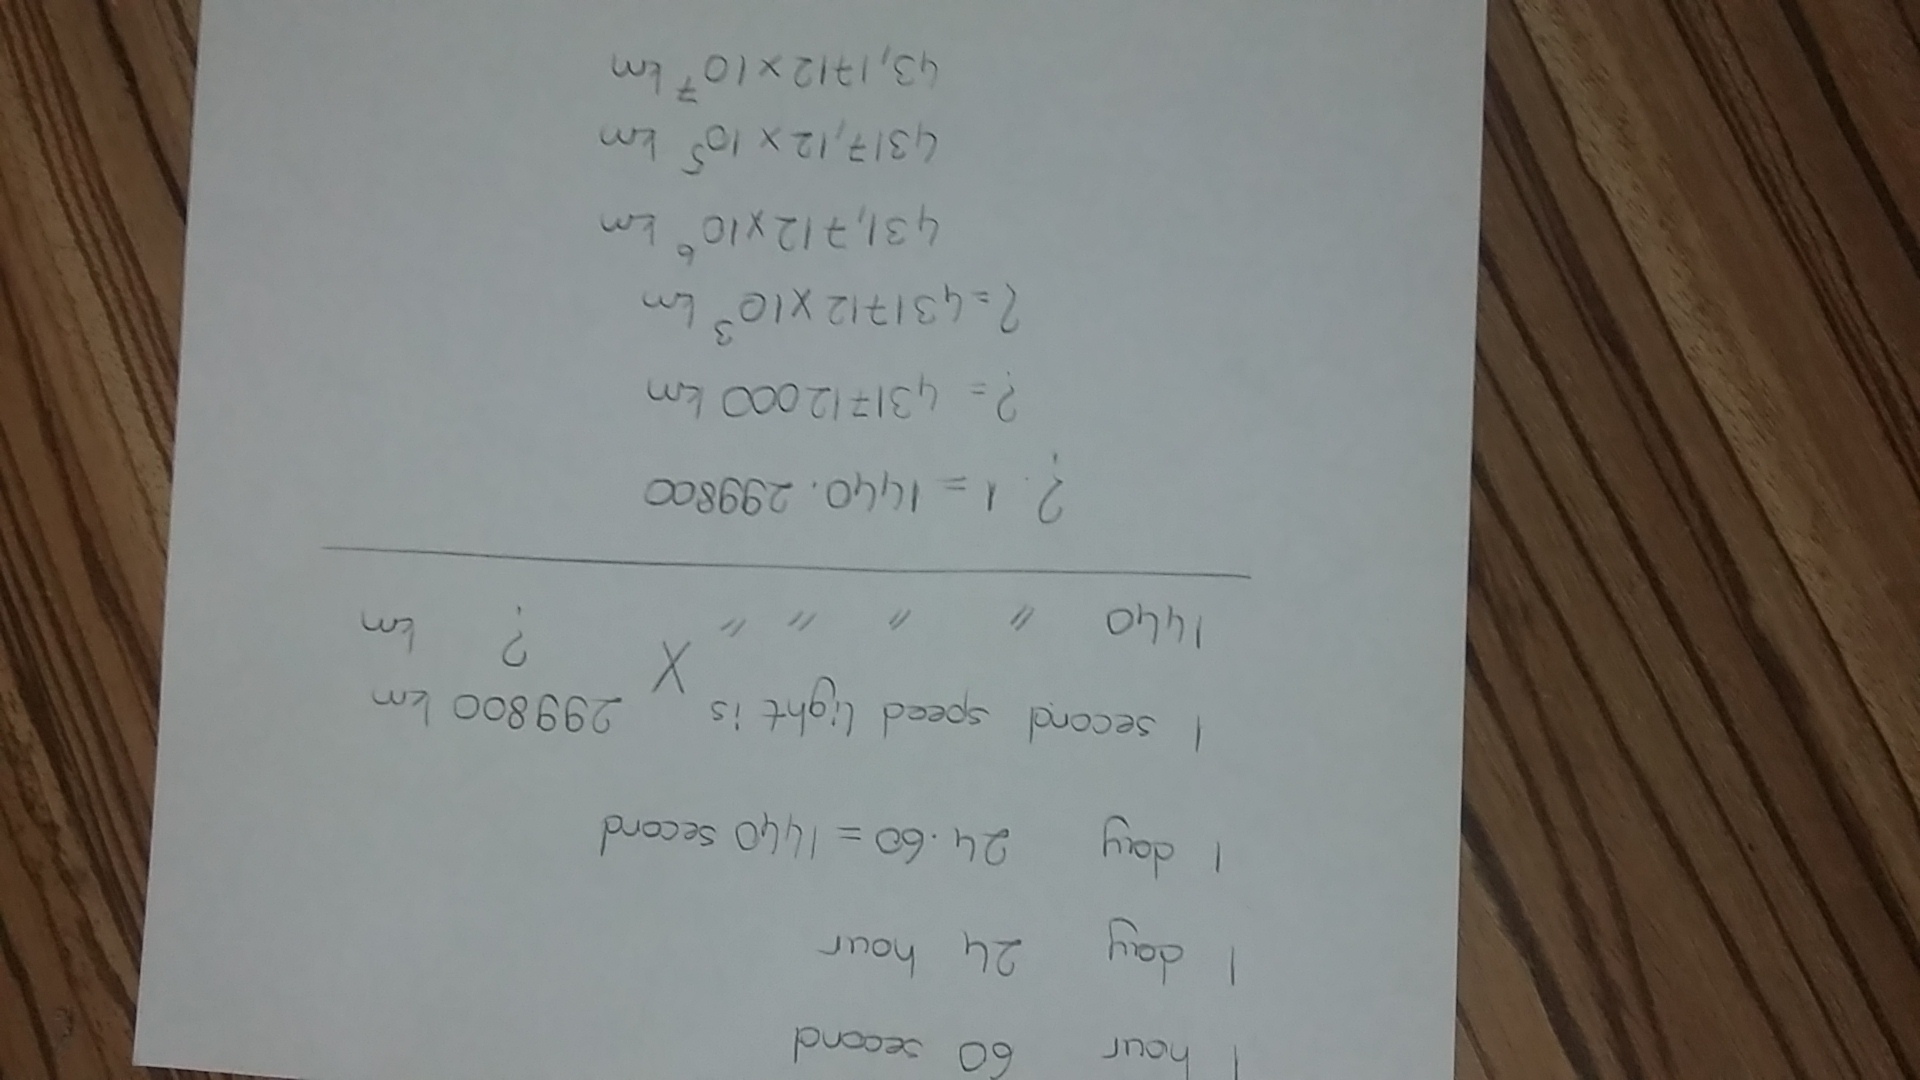 1 hour 60 second
1 day 24 hour
1 day 24.60 = 1440 second
1 second speed light is 299800 km
1440 " " " " X ? km
? . 1 = 1440 . 299800
? = 431712000 km
? = 431712 x 10³ km
431,712 x 10⁶ km
4317,12 x 10⁵ km
43,1712 x 10⁷ km